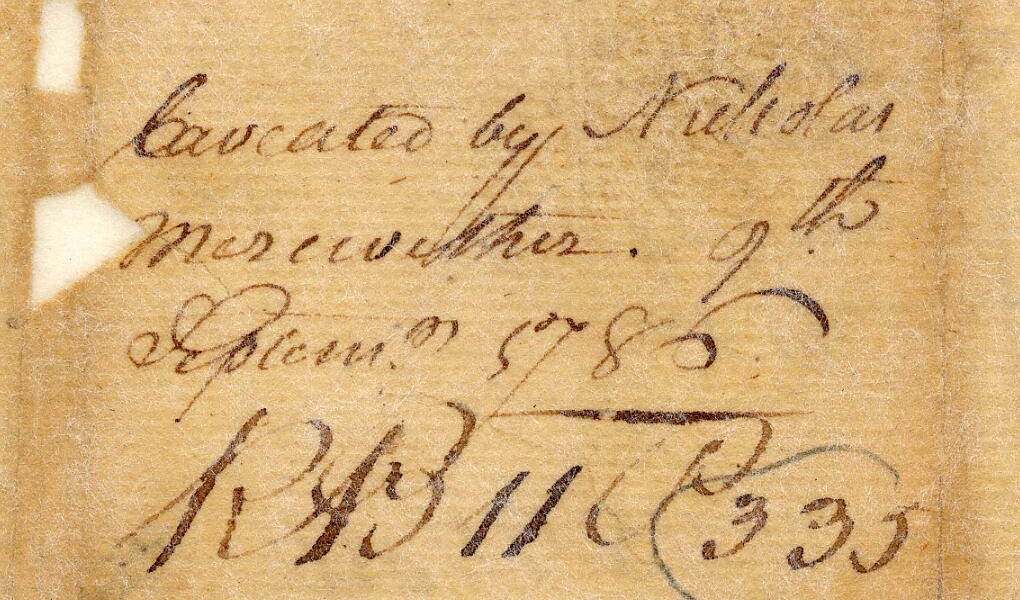 Caveated by Nicholas
Meriwether. 9th
Septemr. 1786.
335